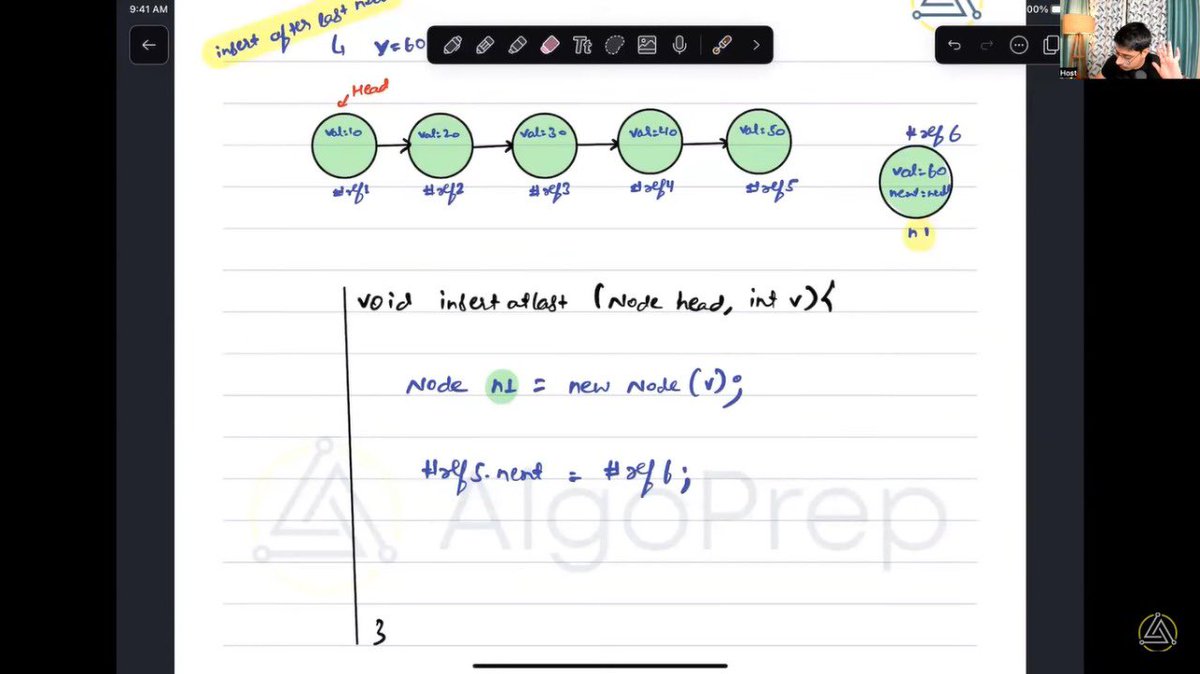 9:41 AM
insert after last
00%
↳ v=60
Tt
Host
Head
val=10
val=20
val=30
val=40
val=50
#ref6
val=60
next=null
#ref1
#ref2
#ref3
#ref4
#ref5
n1
void insertatlast (Node head, int v){
Node n1 = new Node(v);
#ref5.next = #ref6;
AlgoPrep
}